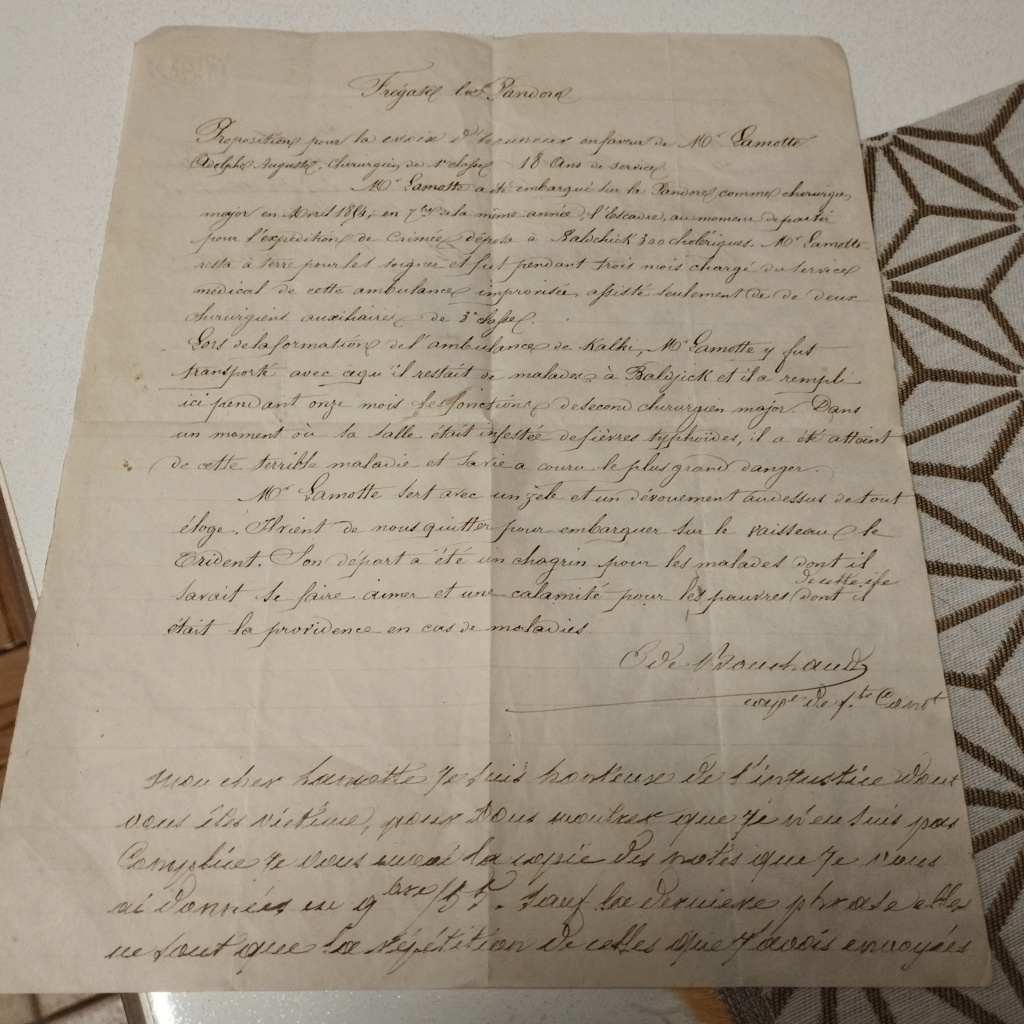 Fregate la Pandore
Proposition pour la croix d'honneur en faveur de Mr Lamotte
Adolphe Auguste, chirurgien de 1re classe 18 Ans de service
Mr Lamotte a été embarqué sur la Pandore comme chirurgien
major en Avril 1854, en 7bre de la même année, l'Escadre, au moment de partir
pour l'expédition de Crimée déposa à Baldchick 300 cholériques. Mr Lamotte
resta à terre pour les soigner et fut pendant trois mois chargé du service
médical de cette ambulance improvisée, assisté seulement de de deux
chirurgiens auxiliaires de 3e classe.
Lors de la formation de l'ambulance de Kalki, Mr Lamotte y fut
transporté avec ce qu'il restait de malades à Baldjick et il a rempli
ici pendant onze mois les fonctions de second chirurgien major. Dans
un moment où sa salle était infestée de fièvres typhoïdes, il a été atteint
de cette terrible maladie et sa vie a couru le plus grand danger.
Mr Lamotte sert avec un zèle et un dévouement au dessus de tout
éloge. Il vient de nous quitter pour embarquer sur le vaisseau le
Trident. Son départ a été un chagrin pour les malades dont il
savait se faire aimer et une calamité pour les pauvres de cette île dont il
était la providence en cas de maladies
E de Bouchaud
cape de fte
Mon cher Lamotte je suis honteux de l'injustice dont
vous êtes victime, pour vous montrer que je n'en suis pas
Complice je vous envoi la copie des notes que je vous
ai données en 9bre /55. Sauf la dernière phrase elles
ne sont que la répétition de celles que j'avois envoyées